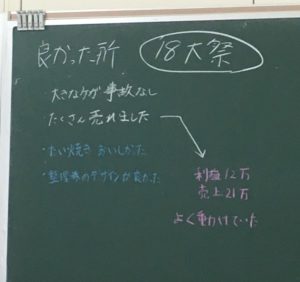 良かった所
18大祭
・大きなケガ事故なし
・たくさん売れました
・たい焼き おいしかった
・整理券のデザインが良かった
利益12万
売上21万
よく動けていた